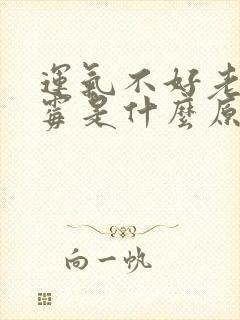 運氣不好老
霉是什麼原
向一帆